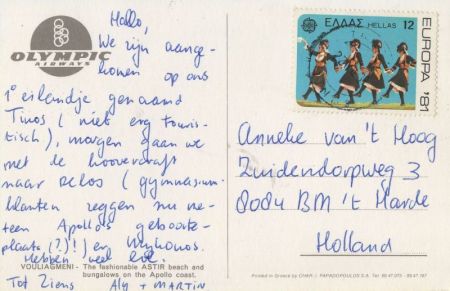 Hallo,
We zijn aange-
komen op ons
1e eilandje genaamd
Tinos (niet erg touris-
tisch), morgen gaan we
met de hoovercraft
naar Delos (gymnasium-
klanten zeggen nu me-
teen Apollo's geboorte-
plaats (?)!) en Mykonos.
Hebben veel
Tot Ziens Aly + MARTIN
OLYMPIC
AIRWAYS
VOULIAGMENI - The fashionable ASTIR beach and
bungalows on the Apollo coast.
ΕΛΛΑΣ HELLAS 12
EUROPA '81
Anneke van 't Hoog
Zuidendorpweg 3
8084 BM 't Harde
Holland
Printed in Greece by CHAR. I. PAPADOPOULOS SA - Tel.